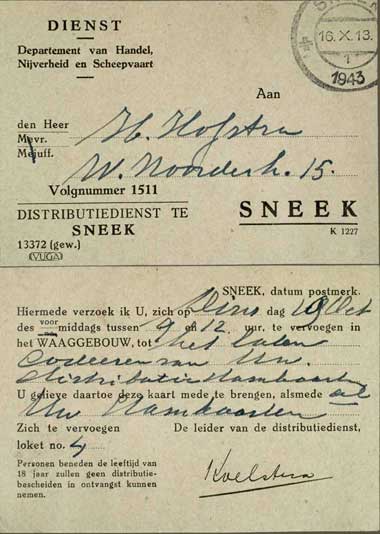 DIENST
Departement van Handel,
Nijverheid en Scheepvaart
SNEEK
16.X.13.
1
1943
Aan
den Heer H. Hofstra
Mevr.
Mejuff. W. Noorderh. 15.
Volgnummer 1511
DISTRIBUTIEDIENST TE
SNEEK
SNEEK
K 1227
13372 (gew.)
(VUGA)
SNEEK, datum postmerk.
Hiermede verzoek ik U, zich op Dins dag Oct
des voormiddags tussen 9 en 12 uur, te vervoegen in
het WAAGGEBOUW, tot het laten
Codeeren van Uw
distributie stamkaarten
U gelieve daartoe deze kaart mede te brengen, alsmede al
Uw Stamkaarten
Zich te vervoegen
De leider van de distributiedienst,
loket no. 4
Personen beneden de leeftijd van
18 jaar zullen geen distributie-
bescheiden in ontvangst kunnen
nemen.
Koelstra